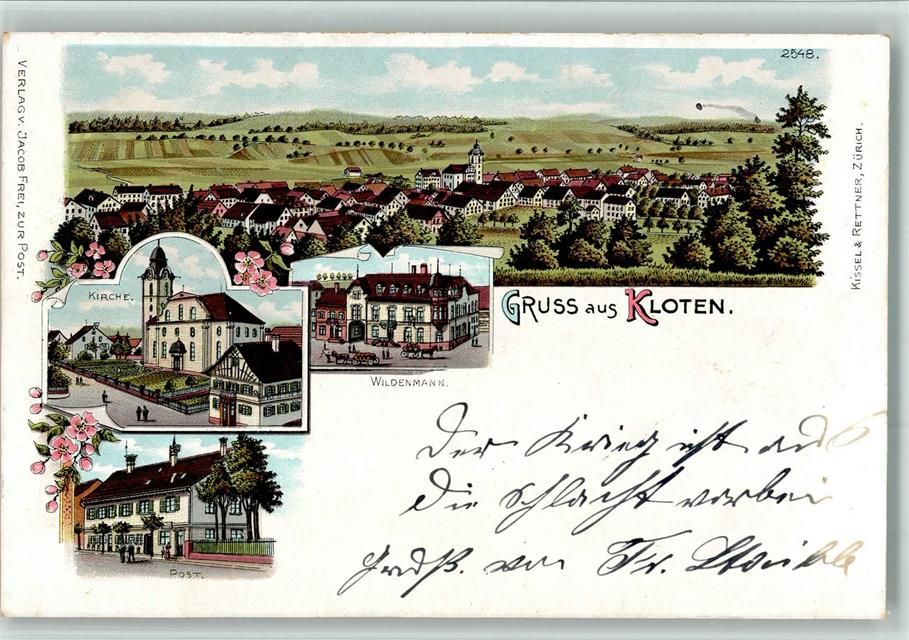 2548.
VERLAG V. JACOB FREI, ZUR POST.
KISSEL & RETTNER, ZÜRICH.
KIRCHE.
GRUSS AUS KLOTEN.
WILDENMANN.
POST.
Der Krieg ist aus
die Schlacht vorbei
Gruß. von Fr.